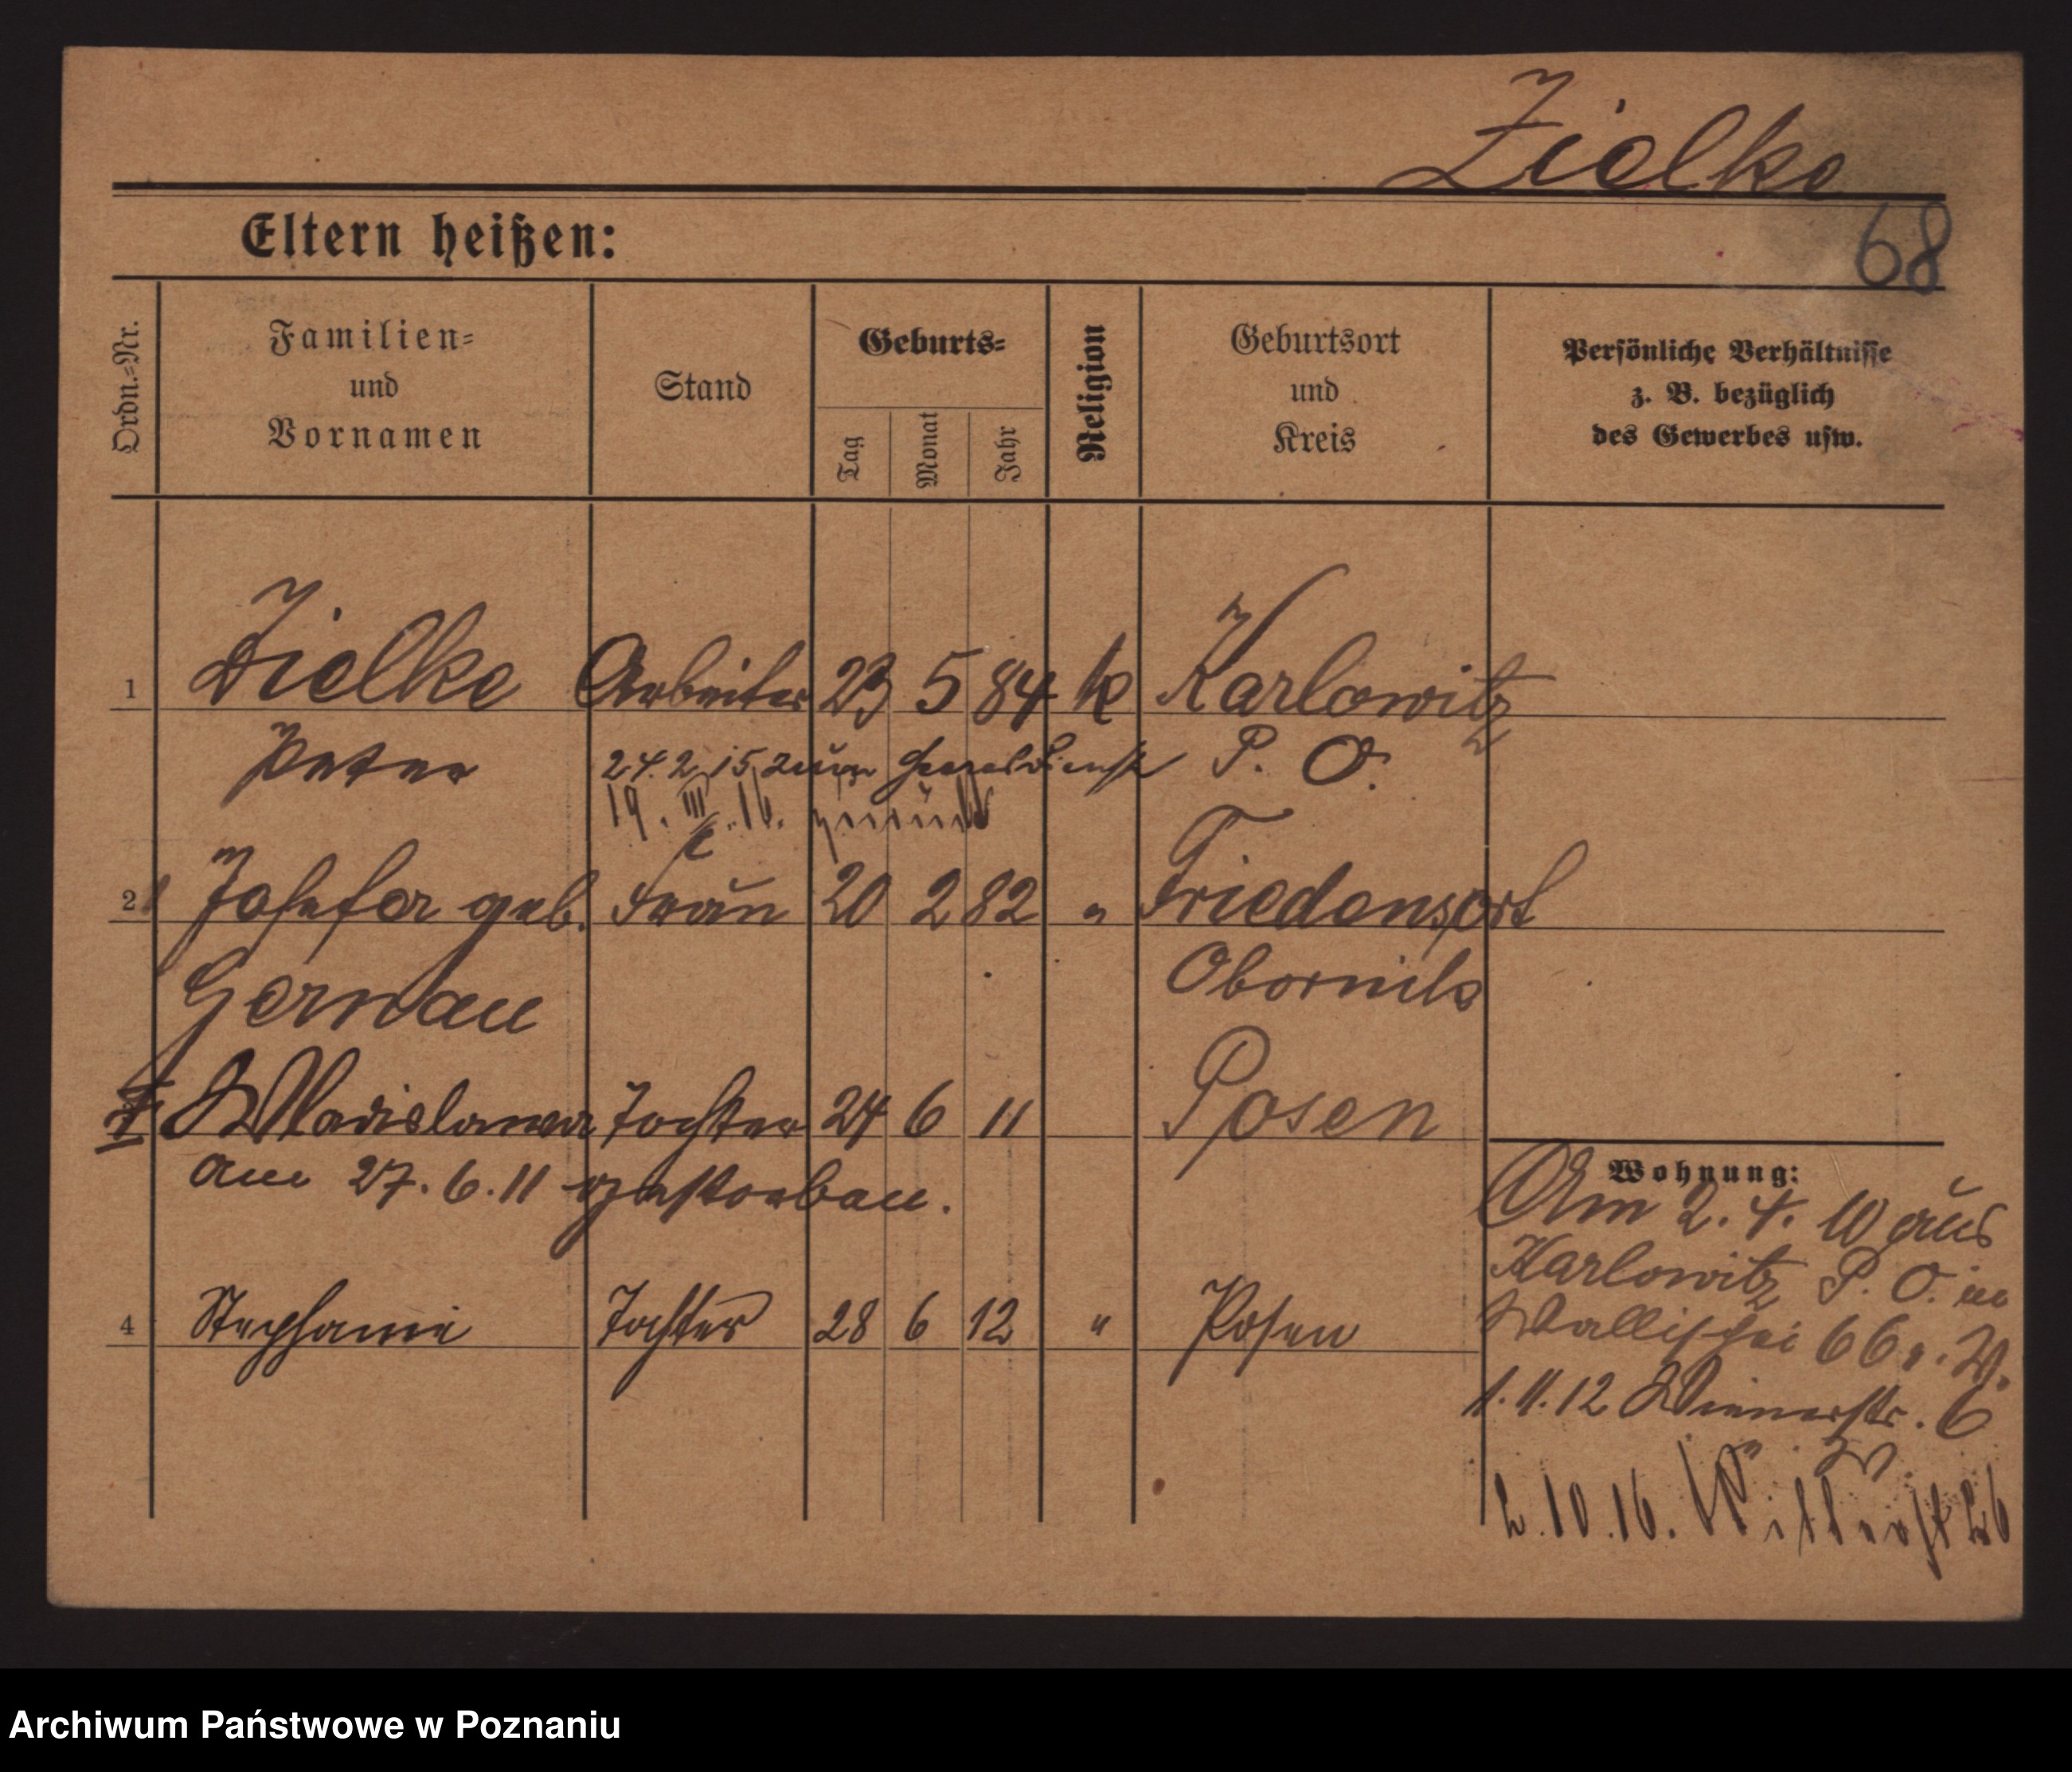 Zielke
68
Eltern heißen:
Ordn.=Nr.
Familien=
und
Vornamen
Stand
Geburts=
Tag
Monat
Jahr
Religion
Geburtsort
und
Kreis
Persönliche Verhältnisse
z. B. bezüglich
des Gewerbes usw.
1 Zielke Arbeiter 23 5 84 k Karlowitz
Peter 24.2.15 zum Heeresdienst P. O.
19. III. 16. zurück
2 Josefa geb. Frau 20 2 82 " Friedensort
Gernau Obornik
Wladislawa Tochter 24 6 11 Posen
am 27.6.11 gestorben.
4 Stephanie Tochter 28 6 12 " Posen
Wohnung:
Am 2.4.10 aus
Karlowitz P. O. in
Wallischei 66
1.11.12 Wienerstr. 6
2.10.16.
Archiwum Państwowe w Poznaniu